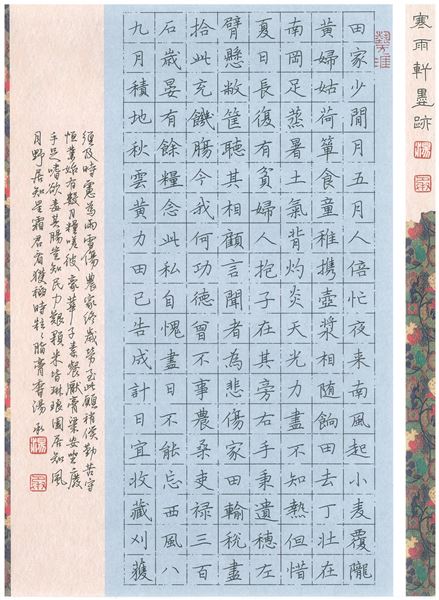 寒雨軒墨跡
田家少閒月五月人倍忙夜來南風起小麥覆隴
黃婦姑荷簞食童稚攜壺漿相隨餉田去丁壯在
南岡足蒸暑土氣背灼炎天光力盡不知熱但惜
夏日長復有貧婦人抱子在其旁右手秉遺穗左
臂懸敝筐聽其相顧言聞者為悲傷家田輸稅盡
拾此充饑腸今我何功德曾不事農桑吏祿三百
石歲晏有餘糧念此私自愧盡日不能忘西風八
九月積地秋雲黃力田已告成計日宜收藏刈穫
須及時慮為雨雪傷農家終歲勞至此願稍償勤苦守
恒業始有數月糧嗟彼豪華子素餐厭膏粱安坐廢
手足嗜欲毒其腸豈知民力艱顆米皆琳琅園居知風
月野居知星霜君看獲稻時粒〻脂膏香